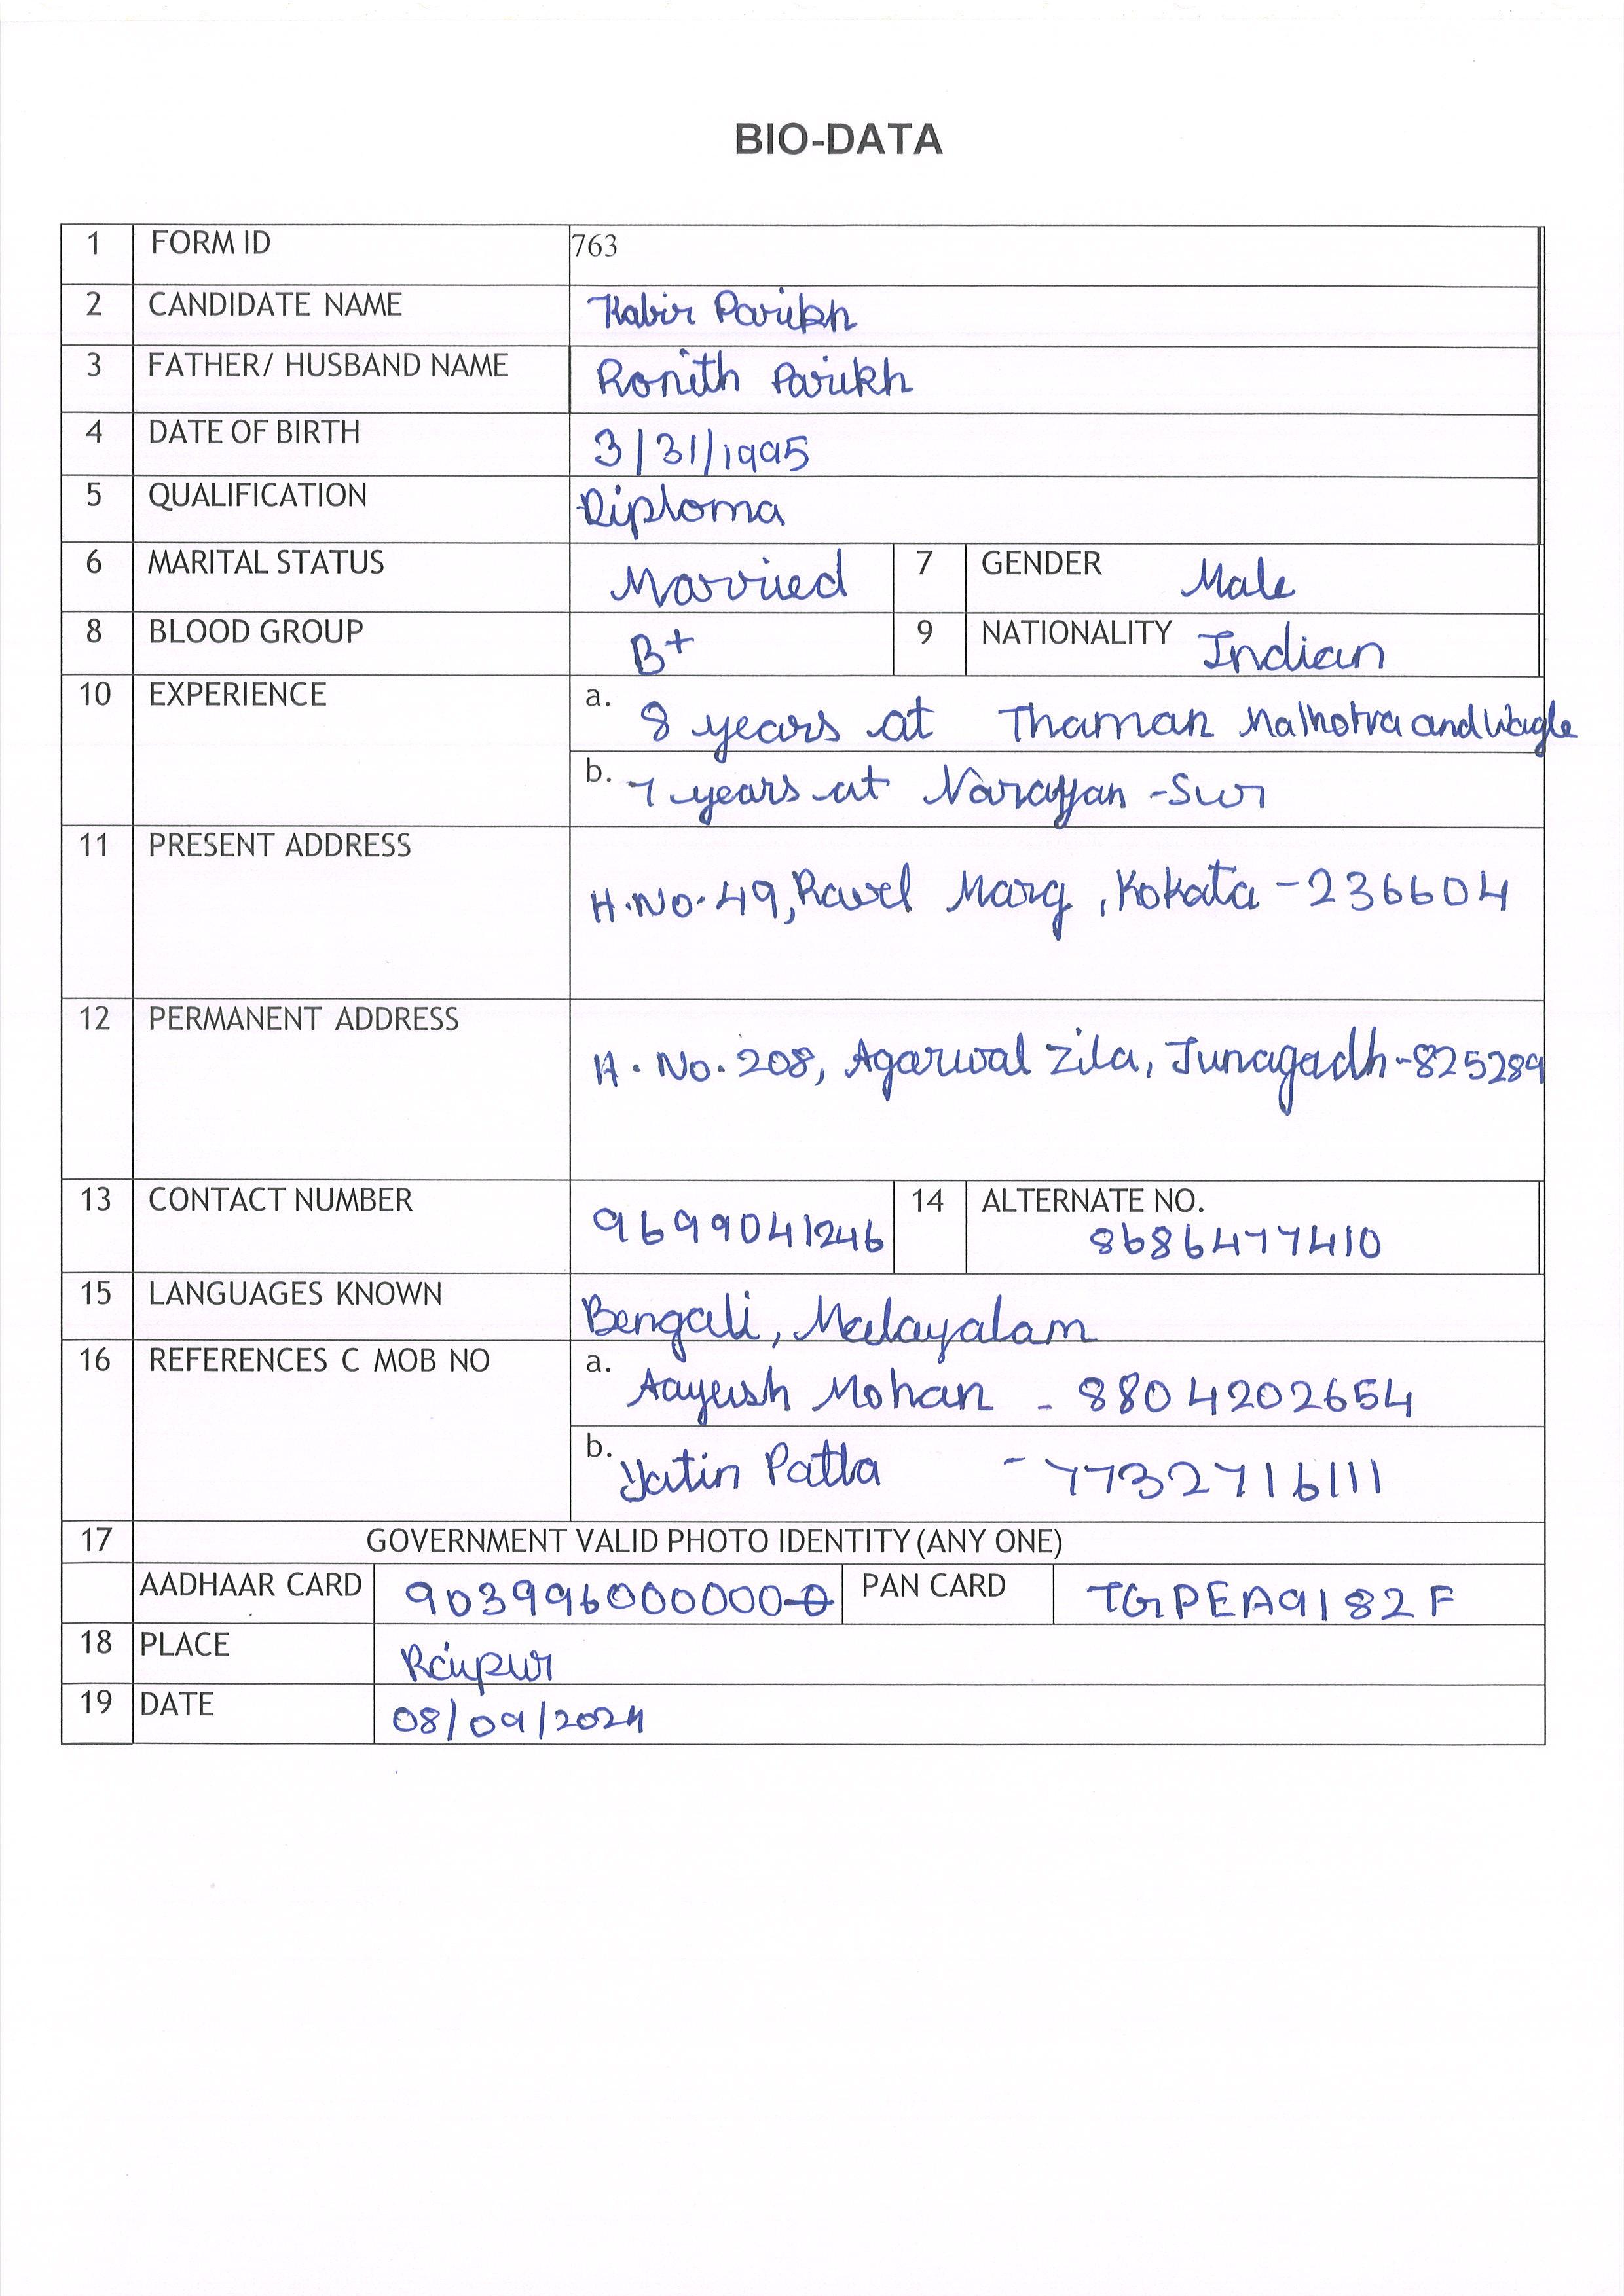 BIO-DATA
1 FORM ID 763
2 CANDIDATE NAME Kabir Parikh
3 FATHER/ HUSBAND NAME Ronith Parikh
4 DATE OF BIRTH 3/31/1995
5 QUALIFICATION Diploma
6 MARITAL STATUS Married 7 GENDER Male
8 BLOOD GROUP B+ 9 NATIONALITY Indian
10 EXPERIENCE a. 8 years at Thaman Malhotra and Wagle
b. 7 years at Narayan - Sur
11 PRESENT ADDRESS
H.No. 49, Ravel Marg, Kokata - 236604
12 PERMANENT ADDRESS
H. No. 208, Agarwal Zila, Junagadh - 825289
13 CONTACT NUMBER 9699041246 14 ALTERNATE NO.
8686477410
15 LANGUAGES KNOWN Bengali, Malayalam
16 REFERENCES C MOB NO a. Aayush Mohan - 8804202654
b. Yatin Patla - 7732716111
17 GOVERNMENT VALID PHOTO IDENTITY (ANY ONE)
AADHAAR CARD 903996000000 PAN CARD TGPEA9182F
18 PLACE Raipur
19 DATE 08/09/2024